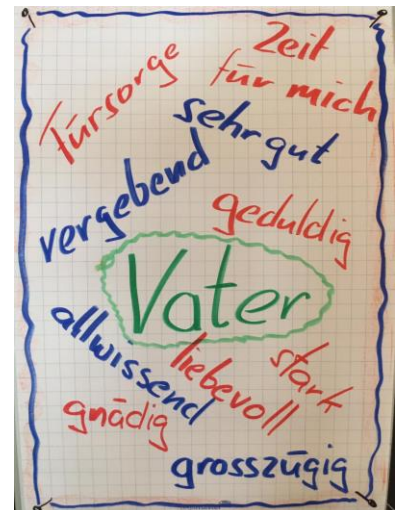 Zeit
für mich
Fürsorge
sehr gut
vergebend
geduldig
Vater
allwissend
liebevoll
stark
gnädig
grosszügig